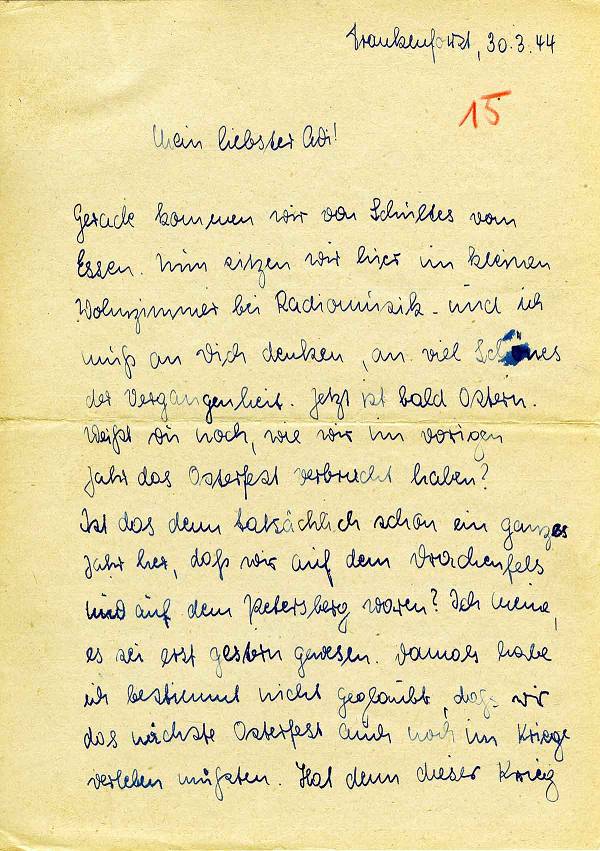 Frankenforst, 30.3.44
15
Mein liebster Adi!
Gerade kommen wir von Schultes vom
Essen. Nun sitzen wir hier im kleinen
Wohnzimmer bei Radiomusik und ich
muß an Dich denken, an viel Schönes
der Vergangenheit. Jetzt ist bald Ostern.
Weißt du noch, wie wir im vorigen
Jahr das Osterfest verbracht haben?
Ist das denn tatsächlich schon ein ganzes
Jahr her, daß wir auf dem Drachenfels
und auf dem Petersberg waren? Ich meine,
es sei erst gestern gewesen. Damals habe
ich bestimmt nicht geglaubt, daß wir
das nächste Osterfest auch noch im Kriege
verleben müßten. Hat denn dieser Krieg